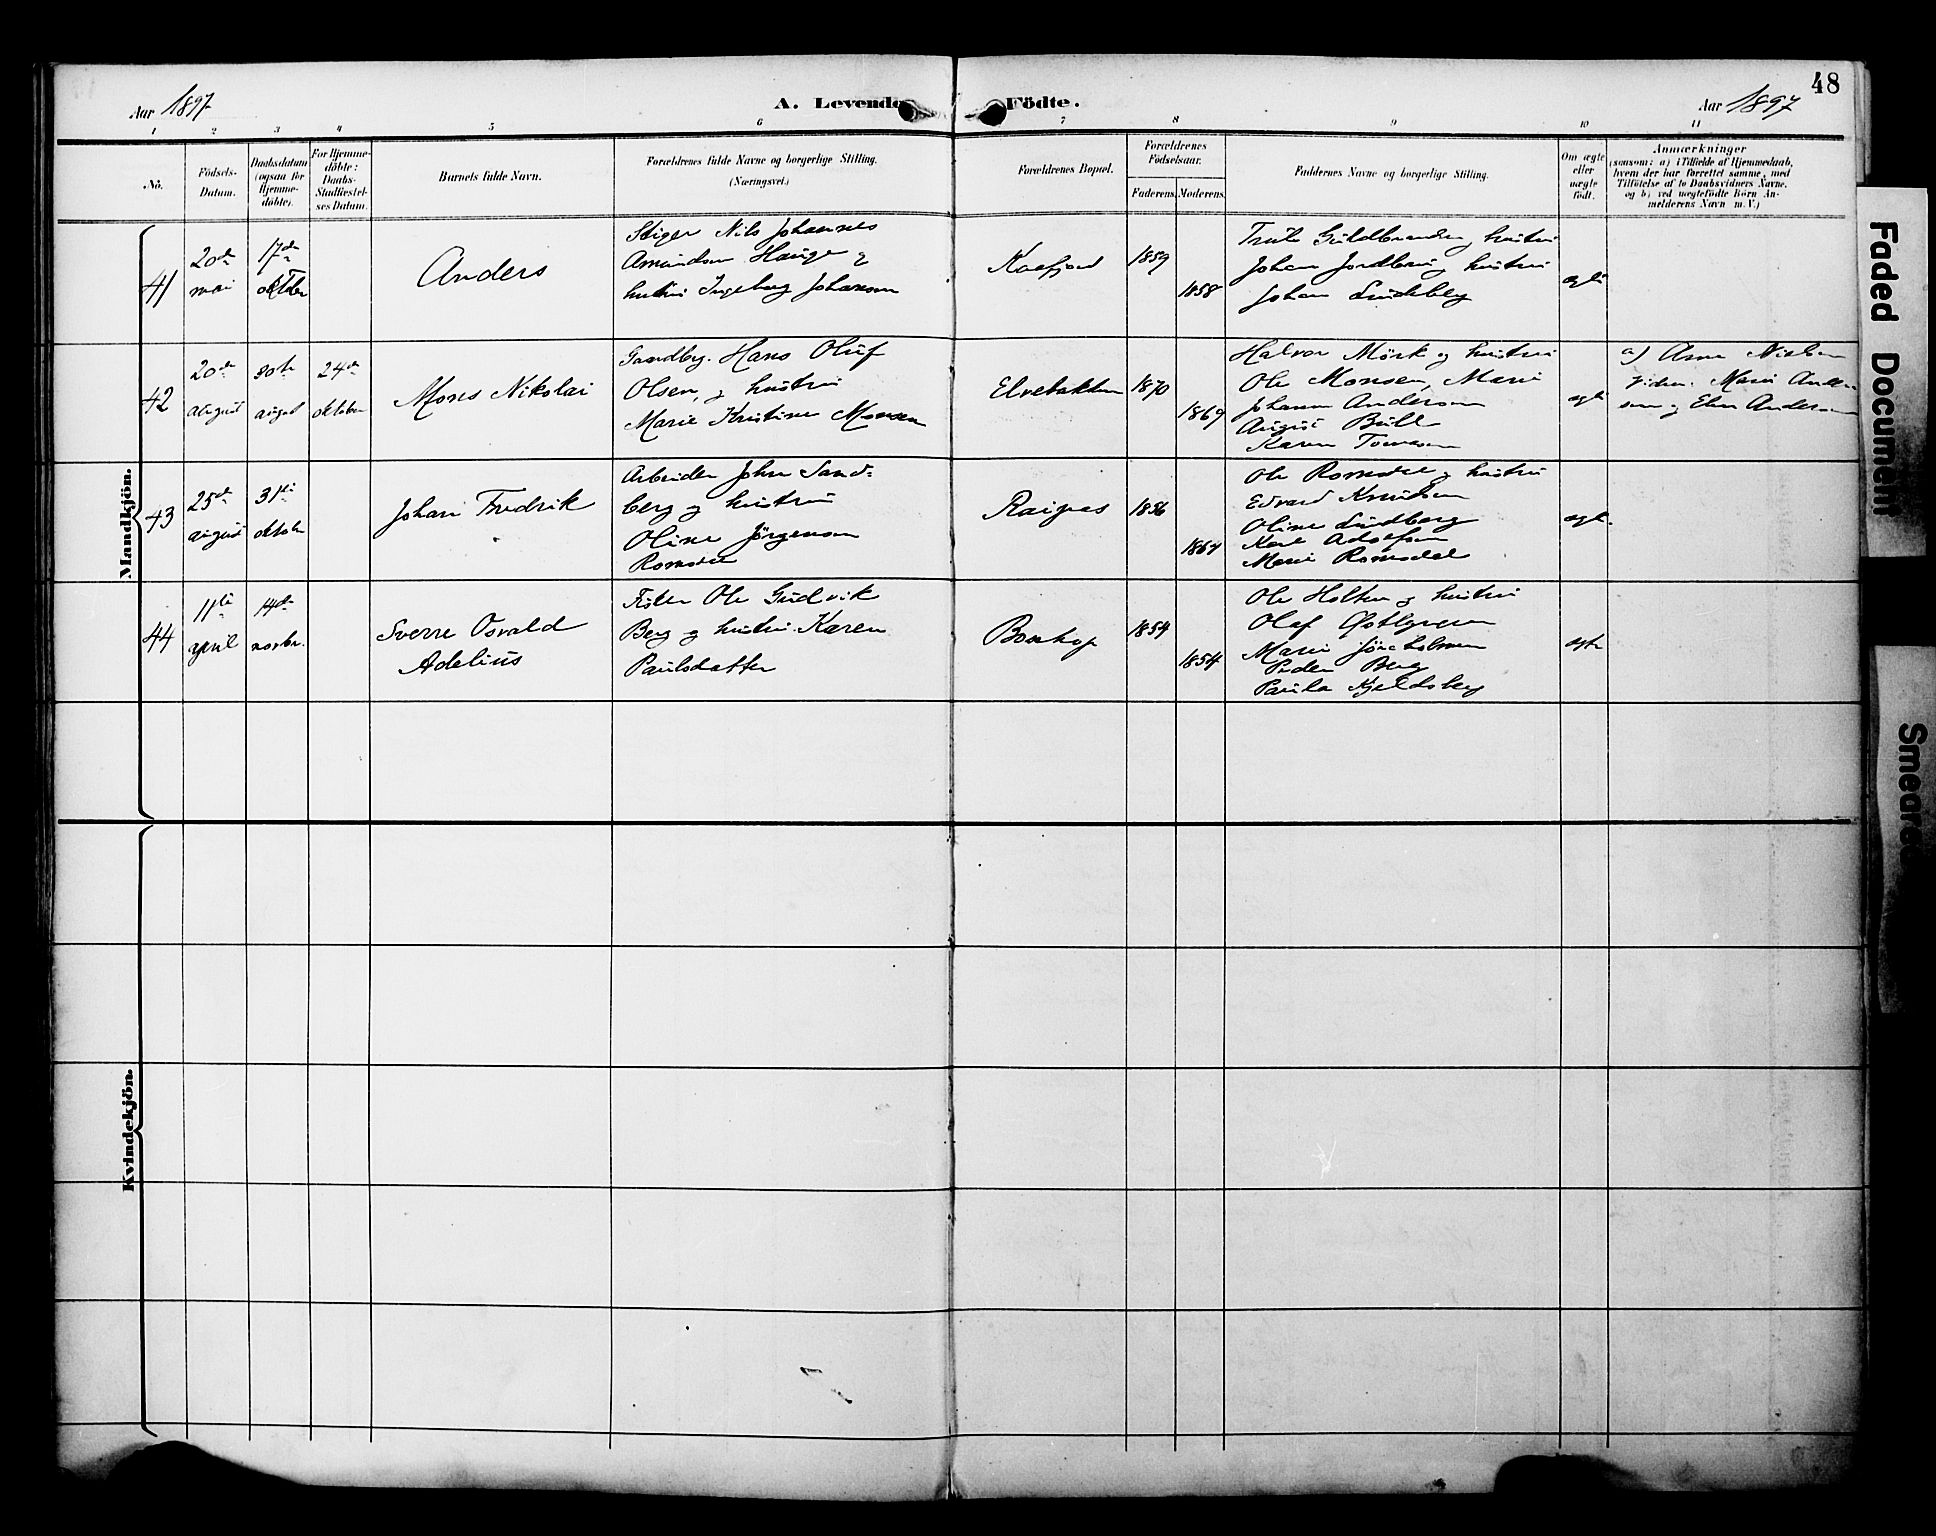 48
Aar 1897
A. Levende Födte.
Aar 1897
1 2 3 4 5 6 7 8 9 10 11
No.
Födsels-
Datum.
Daabsdatum
(ogsaa for
Hjemme-
döbte).
For Hjemme-
döbte:
Daabs-
Stadfæstel-
ses Datum.
Barnets fulde Navn.
Forældrenes fulde Navne og borgerlige Stilling.
(Næringsvei.)
Forældrenes Bopæl.
Forældrenes
Födselsaar.
Faderens.
Moderens.
Faddernes Navne og borgerlige Stilling.
Om ægte
eller
uægte
födt.
Anmærkninger
(saasom: a) i Tilfælde af Hjemmedaab,
hvem der har forrettet samme, med
Tilföielse af to Daabsvidners Navne,
og b) ved uægtefödte Börn An-
melderens Navn m. V.)
Mandkjön.
41
20de
mai
17de
oktober
Anders
Stiger Nils Johannes
Amundsen Hauge &
hustru Ingeborg Johansen
Kaafjord
1859
1858
Guldbrandsen, hustru
Johan og hustru
Johan Lindeberg
ægte
42
20de
august
30te
august
24de
oktober
Mons Nikolai
Hans Oluf
Olsen, og hustru
Marie Kristine Monsen
Elvebakken
1870
1869
Halvor Mörk og hustru
Ole Monsen, Marie
Johanne Andersen
August Bull
Karen
ægte
a) Nielsen
Marie Ander-
sen og Andersen
43
25de
august
31te
oktober
Johan Fredrik
Arbeider John Sand-
berg og hustru
Oline Jörgensen
Romsdal
Raipas
1856
1864
Ole Romsdal og hustru
Edvard Knudsen
Oline Lindberg
Karl Adolfsen
Marie Romsdal
ægte
44
11te
april
14de
novbr.
Sverre Osvald
Adelius
Fisker Ole Gudvik
Berg og hustru Karen
Paulsdatter
Bossekop
1854
1854
Ole Holten og hustru
Olaf
Marie
Peder Berg
Paula Kjeldsberg
ægte
Kvindekjön.
Faded Document
Smeared